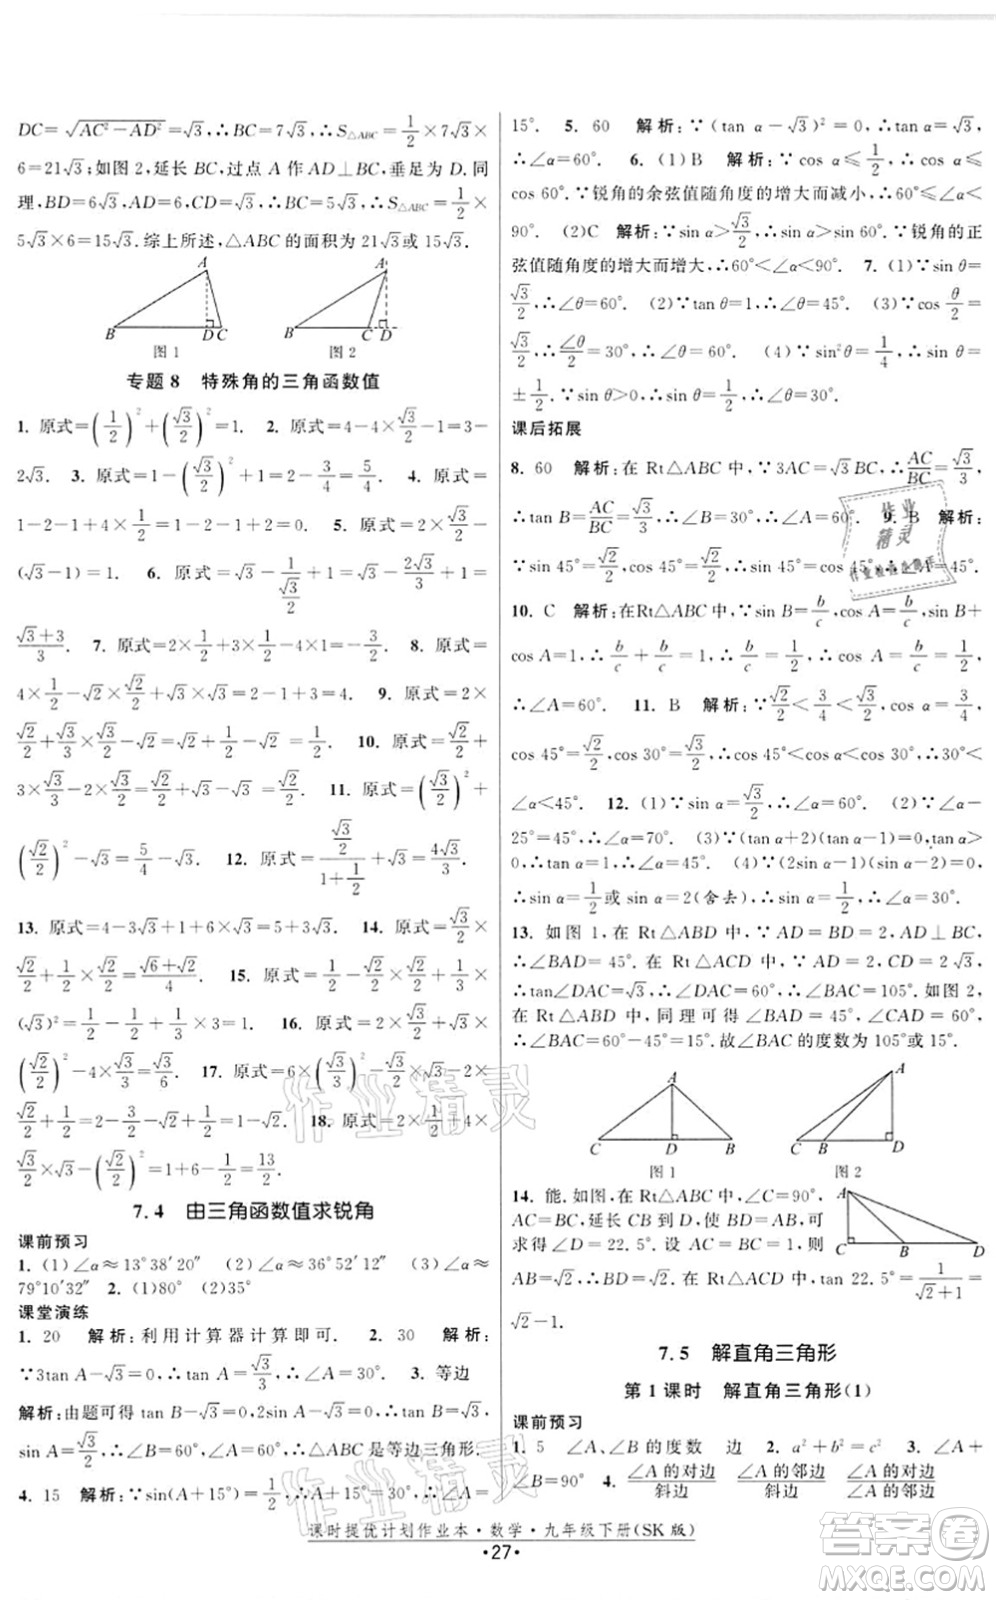 DC=√(AC²－AD²)=√3,∴BC=7√3,∴S△ABC=1/2×7√3
×6=21√3;如图2,延长BC,过点A作AD⊥BC,垂足为D.同
理,BD=6√3,CD=√3,∴BC=5√3,∴S△ABC=1/2×
5√3×6=15√3.综上所述,△ABC的面积为21√3或15√3.
A B D C 图1
A B C D 图2
专题8 特殊角的三角函数值
1. 原式=(1/2)²+(√3/2)²=1. 2. 原式=4－4×√3/2－1=3－
2√3. 3. 原式=1－(√3/2)²+1/2=1－3/4+1/2=3/4. 4. 原式=
1－2－1+4×1/2=1－2－1+2=0. 5. 原式=√3－
(√3－1)=1. 6. 原式=√3－1/(√3/2)+1=√3－2√3/3+1=
(√3+3)/3. 7. 原式=2×1/2+1/2×1/2－4×1=－11/4. 8. 原式=
4×1/2－√2×√2/2+√3×√3=2－1+3=4. 9. 原式=2×
√2/2+√3/2×√3/2－√2=√2+3/4－√2=3/4. 10. 原式=√2/2+
3×√3/3－2×√3/2=√2/2+√3－√3=√2/2. 11. 原式=(√3/2)²+
(√2/2)²－√3=5/4－√3. 12. 原式=(√3/2)/(1+1/2)+√3=4√3/3.
13. 原式=4－3√3+1+6×√3/3=5+3√3. 14. 原式=√3/2×
√2/2+1/2×√2/2=(√6+√2)/4. 15. 原式=1/2×√2/2×√2/2+1/3×
(√3)²=1/2－1/4+1/3×3=1. 16. 原式=2×1/2+√3×
(√2/2)²－4×√3/3=1－5√3/6. 17. 原式=6×(√3/3)²－√3×√3/2－2×
√2/2=1/2－√2. 18. 原式=2×1/2+4×
√3/2×√3－(√2/2)²=1+6－1/2=13/2.
7.4 由三角函数值求锐角
课前预习
1. (1)∠α≈13°38′20″ (2)∠α≈36°52′12″ (3)∠α≈
79°10′32″ 2. (1)85° (2)35°
课堂演练
1. 20 解析:利用计算器计算即可. 2. 30 解析:
∵3tan A－√3=0,∴tan A=√3/3,∴∠A=30°. 3. 等边
解析:由题可得tan B－√3=0,2sin A－√3=0,∴tan B=√3,
sin A=√3/2,∴∠B=60°,∠A=60°,∴△ABC是等边三角形.
4. 15 解析:∵sin(A+15°)=1/2,∴∠A+15°=30°,∴∠A=
15°. 5. 60 解析:∵(tan α－√3)²=0,∴tan α=√3,
∴∠α=60°. 6. (1)B 解析:∵cos α≤1/2,∴cos α≤
cos 60°.∵锐角的余弦值随角度的增大而减小,∴60°≤∠α<
90°. (2)C 解析:∵sin α>√3/2,∴sin α>sin 60°.∵锐角的正
弦值随角度的增大而增大,∴60°<∠α<90°. 7. (1)∵sin θ=
√3/2,∴∠θ=60°. (2)∵tan θ=1,∴∠θ=45°. (3)∵cos θ/2=
√3/2,∴∠θ/2=30°,∴∠θ=60°. (4)∵sin²θ=1/4,∴sin θ=
±1/2.∵sin θ>0,∴sin θ=1/2,∴∠θ=30°.
课后拓展
8. 60 解析:在Rt△ABC中,∵3AC=√3BC,∴AC/BC=√3/3,
∴tan B=AC/BC=√3/3,∴∠B=30°,∴∠A=60°. 9. B 解析:
10. C 解析:在Rt△ABC中,∵sin B=b/c,cos A=b/c,sin B+
cos A=1,∴b/c+b/c=1,∴b/c=1/2,∴cos A=b/c=1/2,
∴∠A=60°. 11. B 解析:∵√2/2<3/4<√3/2,cos α=3/4,
cos 45°=√2/2,cos 30°=√3/2,∴cos 45°<cos α<cos 30°,∴30°<
∠α<45°. 12. (1)∵sin α=√3/2,∴∠α=60°. (2)∵∠α－
25°=45°,∴∠α=70°. (3)∵(tan α+2)(tan α－1)=0,tan α>
0,∴tan α=1,∴∠α=45°. (4)∵(2sin α－1)(sin α－2)=0,
∴sin α=1/2或sin α=2(舍去),∴sin α=1/2,∴∠α=30°.
13. 如图1,在Rt△ABD中,∵AD=BD=2,AD⊥BC,
∴∠BAD=45°.在Rt△ACD中,∵AD=2,CD=2√3,
∴tan∠DAC=√3,∴∠DAC=60°,∴∠BAC=105°.如图2,
在Rt△ABD中,同理可得∠BAD=45°,∠CAD=60°,
∴∠BAC=60°－45°=15°.故∠BAC的度数为105°或15°.
A C D B 图1
A C B D 图2
14. 能.如图,在Rt△ABC中,∠C=90°,
AC=BC,延长CB到D,使BD=AB,可
求得∠D=22.5°.设AC=BC=1,则
AB=√2=BD.在Rt△ACD中,tan 22.5°=1/(√2+1)=
√2－1.
A C B D
7.5 解直角三角形
第1课时 解直角三角形(1)
课前预习
1. 5 ∠A、∠B的度数 边 2. a²+b²=c² 3. ∠A+
∠B=90° 4. ∠A的对边/斜边 ∠A的邻边/斜边 ∠A的对边/∠A的邻边
课时提优计划作业本·数学·九年级下册(SK版)
·27·
作业精灵
答案圈
MXQE.COM